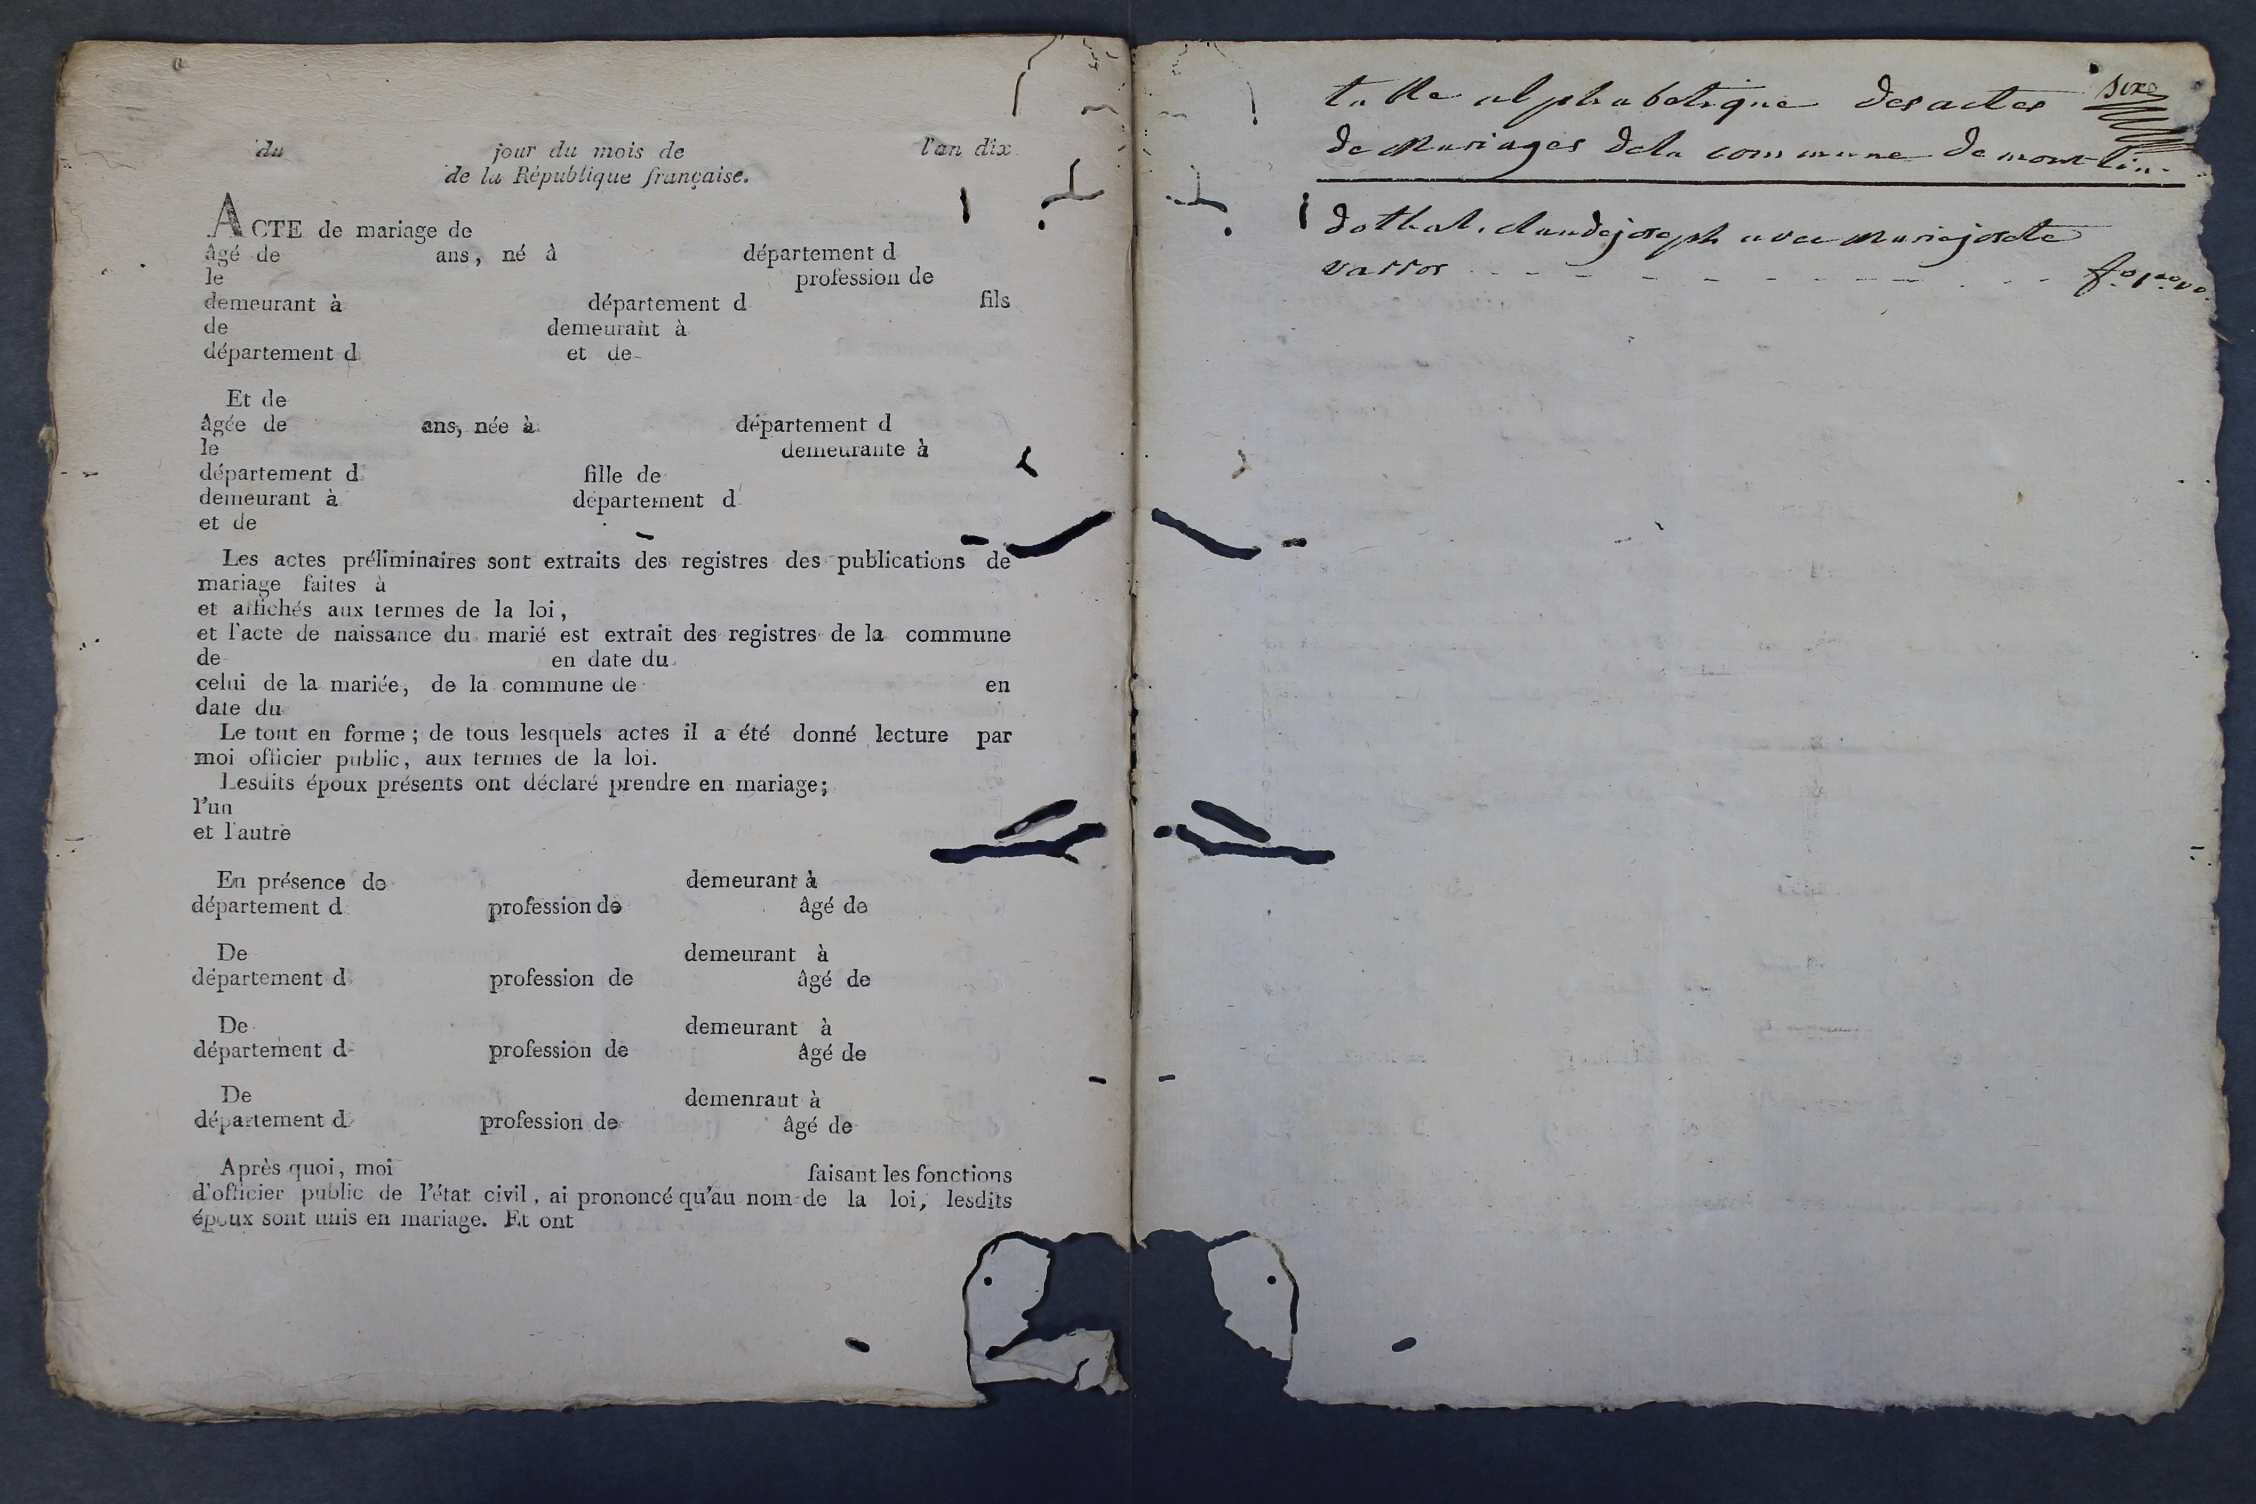 du jour du mois de l'an dix
de la République française.
ACTE de mariage de
âgé de ans, né à département d
le profession de
demeurant à département d fils
de demeurant à
département d et de
Et de
âgée de ans, née à département d
le demeurante à
département d fille de
demeurant à département d
et de
Les actes préliminaires sont extraits des registres des publications de
mariage faites à
et affichés aux termes de la loi,
et l'acte de naissance du marié est extrait des registres de la commune
de en date du
celui de la mariée, de la commune de en
date du
Le tout en forme ; de tous lesquels actes il a été donné lecture par
moi officier public, aux termes de la loi.
Lesdits époux présents ont déclaré prendre en mariage ;
l'un
et l'autre
En présence de demeurant à
département d profession de âgé de
De demeurant à
département d profession de âgé de
De demeurant à
département d profession de âgé de
De demenraut à
département d profession de âgé de
Après quoi, moi faisant les fonctions
d'officier public de l'état civil, ai prononcé qu'au nom de la loi, lesdits
époux sont unis en mariage. Et ont
table alphabetique des actes
de Mariages dela commune de
claude joseph avec marie josete